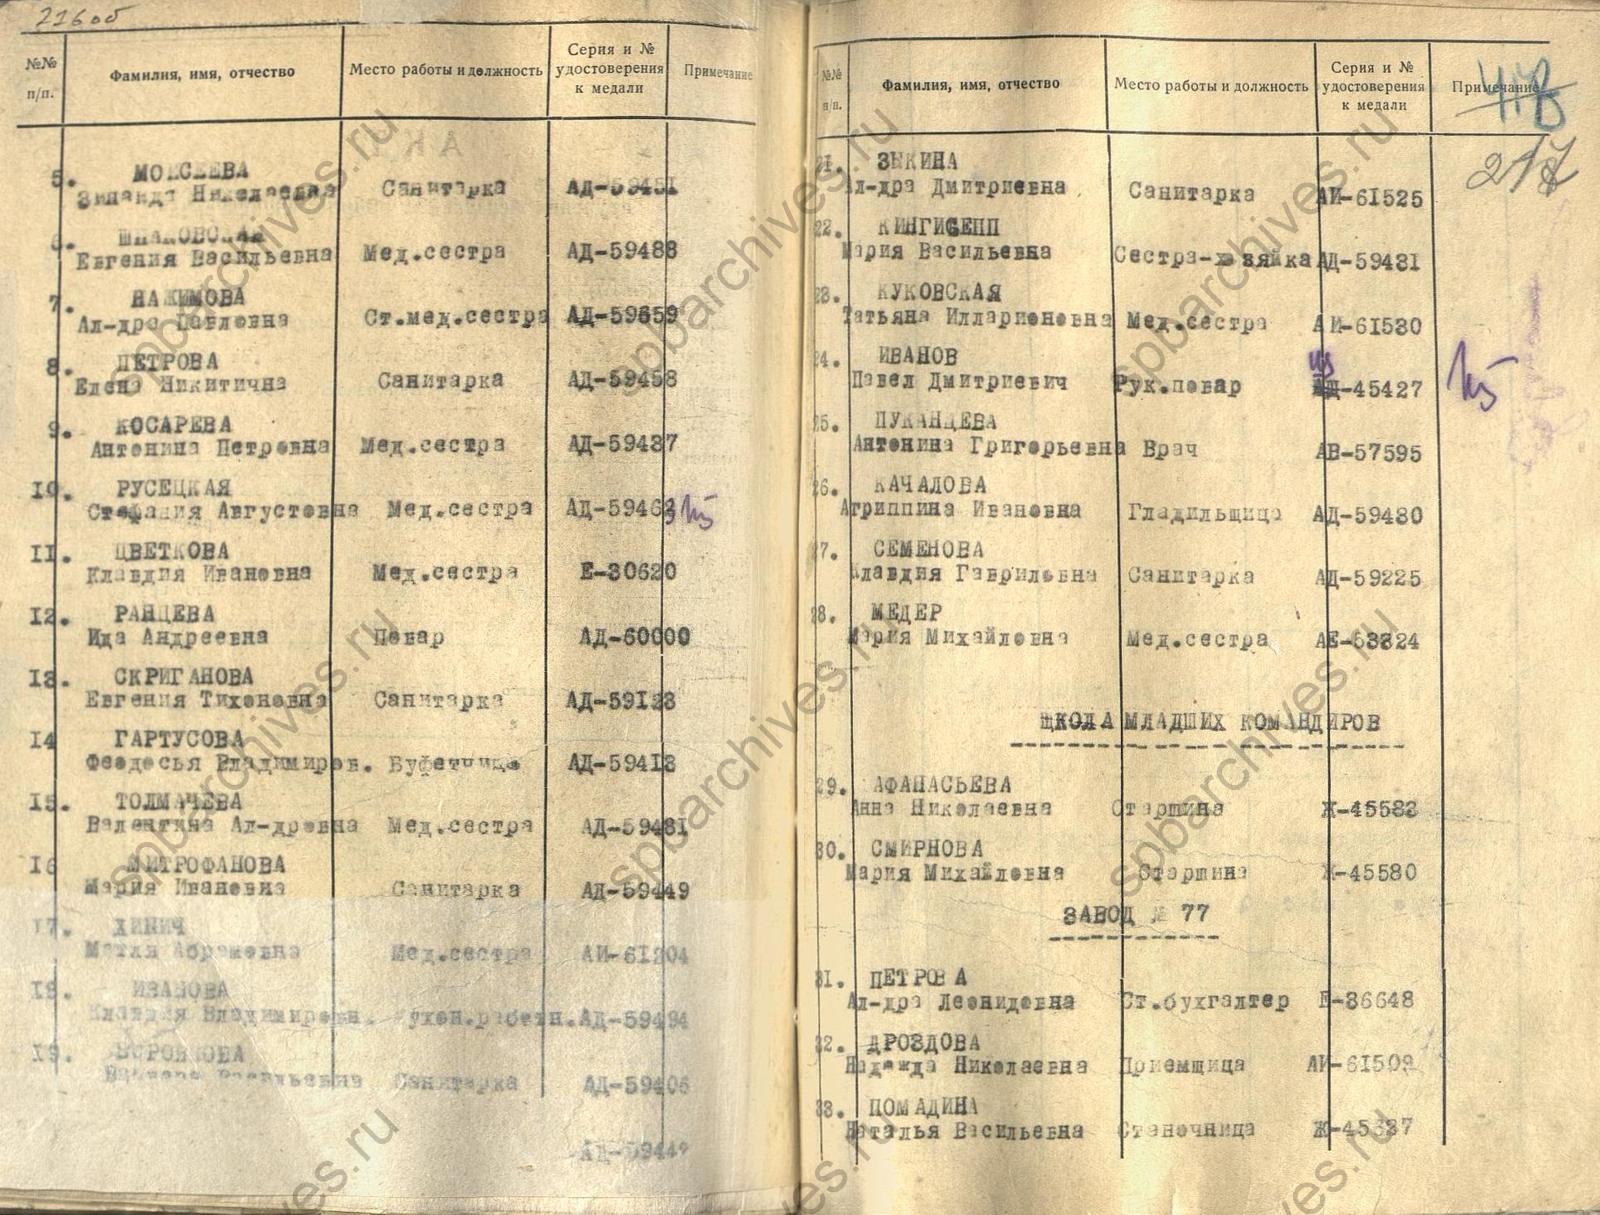 216об
№№ п/п.
Фамилия, имя, отчество
Место работы и должность
Серия и № удостоверения к медали
Примечание
5. МОИСЕЕВА
Зинаида Николаевна Санитарка АД-59451
6.
Евгения Васильевна Мед.сестра АД-59488
7. НАЖИМОВА
Ал-дра Павловна Ст.мед.сестра АД-59659
8. ПЕТРОВА
Елена Никитична Санитарка АД-59458
9. КОСАРЕВА
Антонина Петровна Мед.сестра АД-59437
10. РУСЕЦКАЯ
Стефания Августовна Мед.сестра АД-59463
II. ЦВЕТКОВА
Клавдия Ивановна Мед.сестра Е-30620
I2. РАНЦЕВА
Ида Андреевна Повар АД-60000
I3. СКРИГАНОВА
Евгения Тихоновна Санитарка АД-59I23
I4 ГАРТУСОВА
Феодосья Владимиров. Буфетчица АД-594I3
I5. ТОЛМАЧЕВА
Валентина Ал-дровна Мед.сестра АД-5943I
I6 МИТРОФАНОВА
Мария Ивановна Санитарка АД-59449
I7. ХИНИЧ
Абрамовна Мед.сестра АИ-6I204
I8. ИВАНОВА
Клавдия Владимировн. кухон.работн. АД-59494
I9.
Васильевна Санитарка АД-59406
№№ п/п.
Фамилия, имя, отчество
Место работы и должность
Серия и № удостоверения к медали
Примечание
217
21. ЗЫКИНА
Ал-дра Дмитриевна Санитарка АИ-6I525
22. КИНГИСЕПП
Мария Васильевна Сестра-хозяйка АД-5943I
23. КУКОВСКАЯ
Татьяна Илларионовна Мед.сестра АИ-6I530
24. ИВАНОВ
Павел Дмитриевич Рук.повар АД-45427
25. ПУКАНЦЕВА
Антонина Григорьевна Врач АВ-57595
26. КАЧАЛОВА
Агриппина Ивановна Гладильщица АД-59430
27. СЕМЕНОВА
Клавдия Гавриловна Санитарка АД-59225
28. МЕДЕР
Мария Михайловна Мед.сестра АЕ-63324
ШКОЛА МЛАДШИХ КОМАНДИРОВ
29. АФАНАСЬЕВА
Анна Николаевна Старшина Ж-45583
30. СМИРНОВА
Мария Михайловна Старшина Ж-45580
ЗАВОД № 77
31. ПЕТРОВА
Ал-дра Леонидовна Ст.бухгалтер Е-36648
32. ДРОЗДОВА
Надежда Николаевна Приемщица АИ-6I509
33. ПОМАДИНА
Наталья Васильевна Станочница Ж-45337
spbarchives.ru